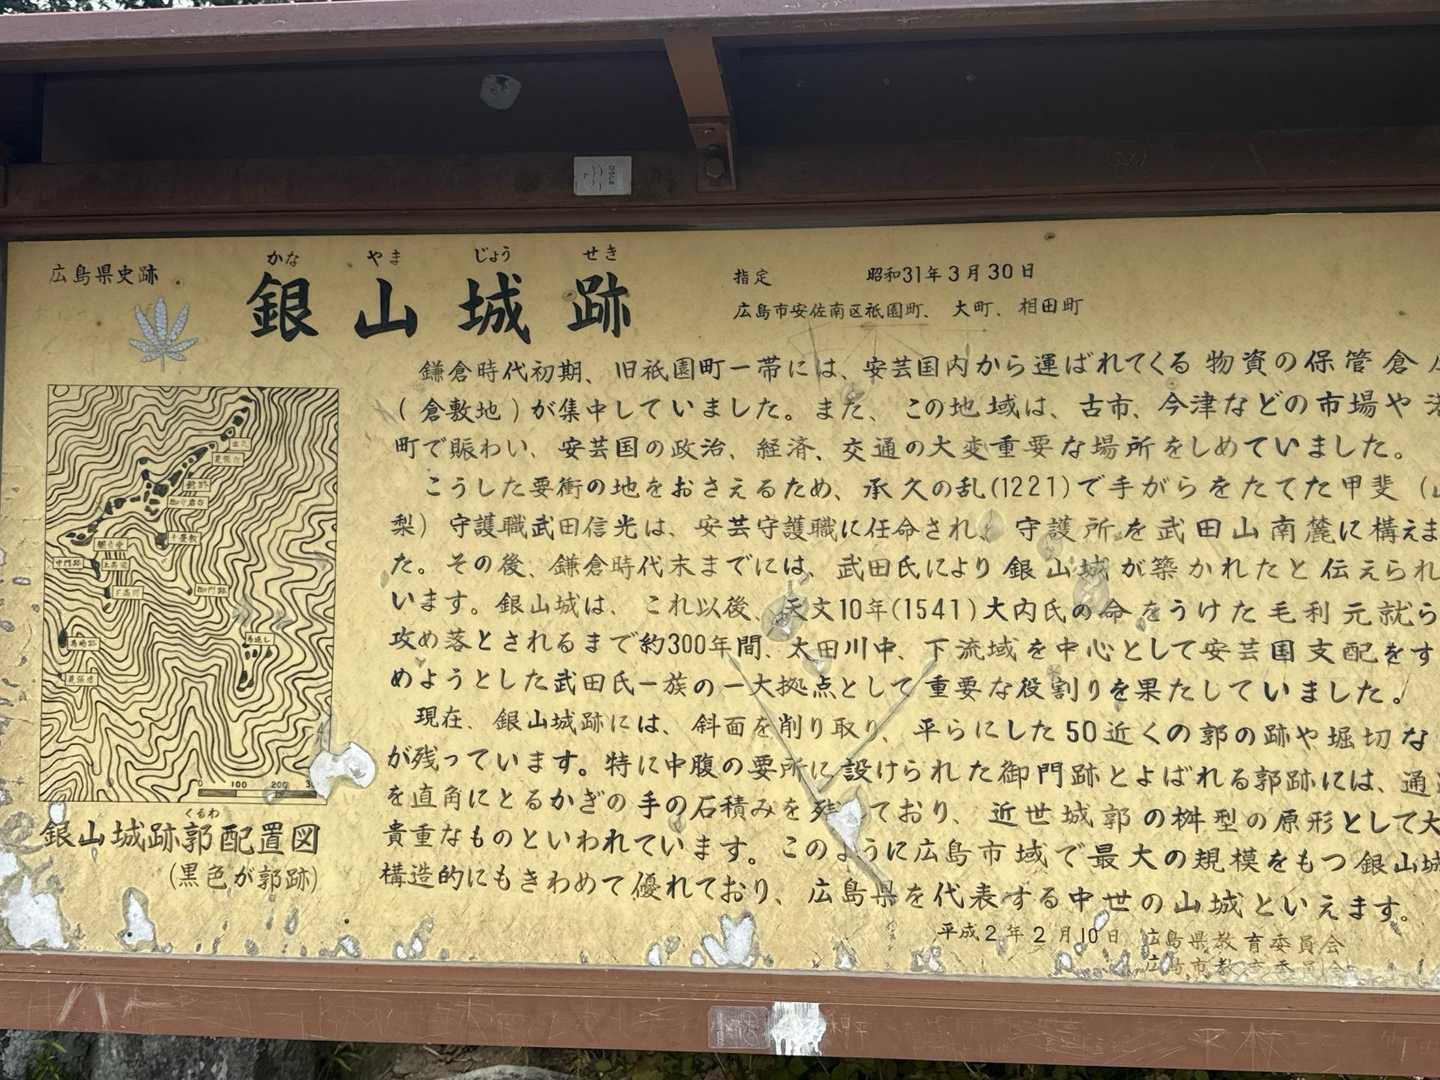 広島県史跡
かな やま じょう せき
銀山城跡
指定 昭和31年3月30日
広島市安佐南区祇園町、大町、相田町
鎌倉時代初期、旧祇園町一帯には、安芸国内から運ばれてくる物資の保管倉
(倉敷地)が集中していました。また、この地域は、古市、今津などの市場や
町で賑わい、安芸国の政治、経済、交通の大変重要な場所をしめていました。
こうした要衝の地をおさえるため、承久の乱(1221)で手がらをたてた甲斐(
梨)守護職武田信光は、安芸守護職に任命され、守護所を武田山南麓に構えま
た。その後、鎌倉時代末までには、武田氏により銀山城が築かれたと伝えられ
います。銀山城は、これ以後、天文10年(1541)大内氏の命をうけた毛利元就ら
攻め落とされるまで約300年間、太田川中、下流域を中心として安芸国支配をす
めようとした武田氏一族の一大拠点として重要な役割りを果たしていました。
現在、銀山城跡には、斜面を削り取り、平らにした50近くの郭の跡や堀切な
が残っています。特に中腹の要所に設けられた御門跡とよばれる郭跡には、通
を直角にとるかぎの手の石積みを残しており、近世城郭の桝型の原形として大
貴重なものといわれています。このように広島市域で最大の規模をもつ銀山城
構造的にもきわめて優れており、広島県を代表する中世の山城といえます。
平成2年2月10日 広島県教育委員会
広島市教育委員会
御門跡
馬返し
0 100 200
くるわ
銀山城跡郭配置図
(黒色が郭跡)